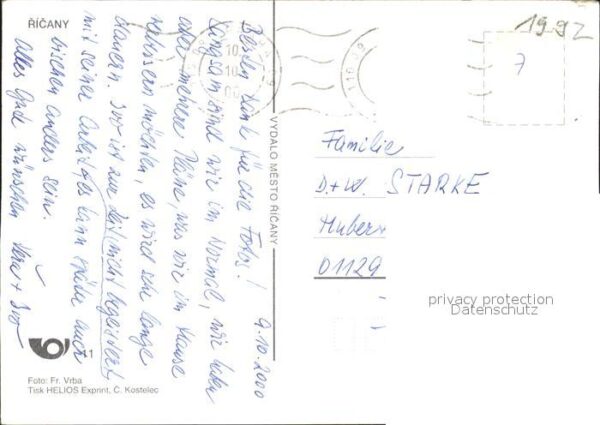 ŘÍČANY
1992
7
9.10.2000
Besten Dank für die Fotos!
Langsam sind wir im Normal, wir haben
aber mehrere Pläne, was wir im Hause
verbessern möchten, es wird sehr lange
dauern. Ivo ist zur Zeit nicht begeistert
mit seiner Arbeit, es kann später auch
bischen anders sein.
Alles Gute wünschen Věra + Ivo
VYDALO MĚSTO ŘÍČANY
10
10
00
Familie
D.+W. STARKE
Huber
01129
privacy protection
Datenschutz
Foto: Fr. Vrba
Tisk HELIOS Exprint, Č. Kostelec